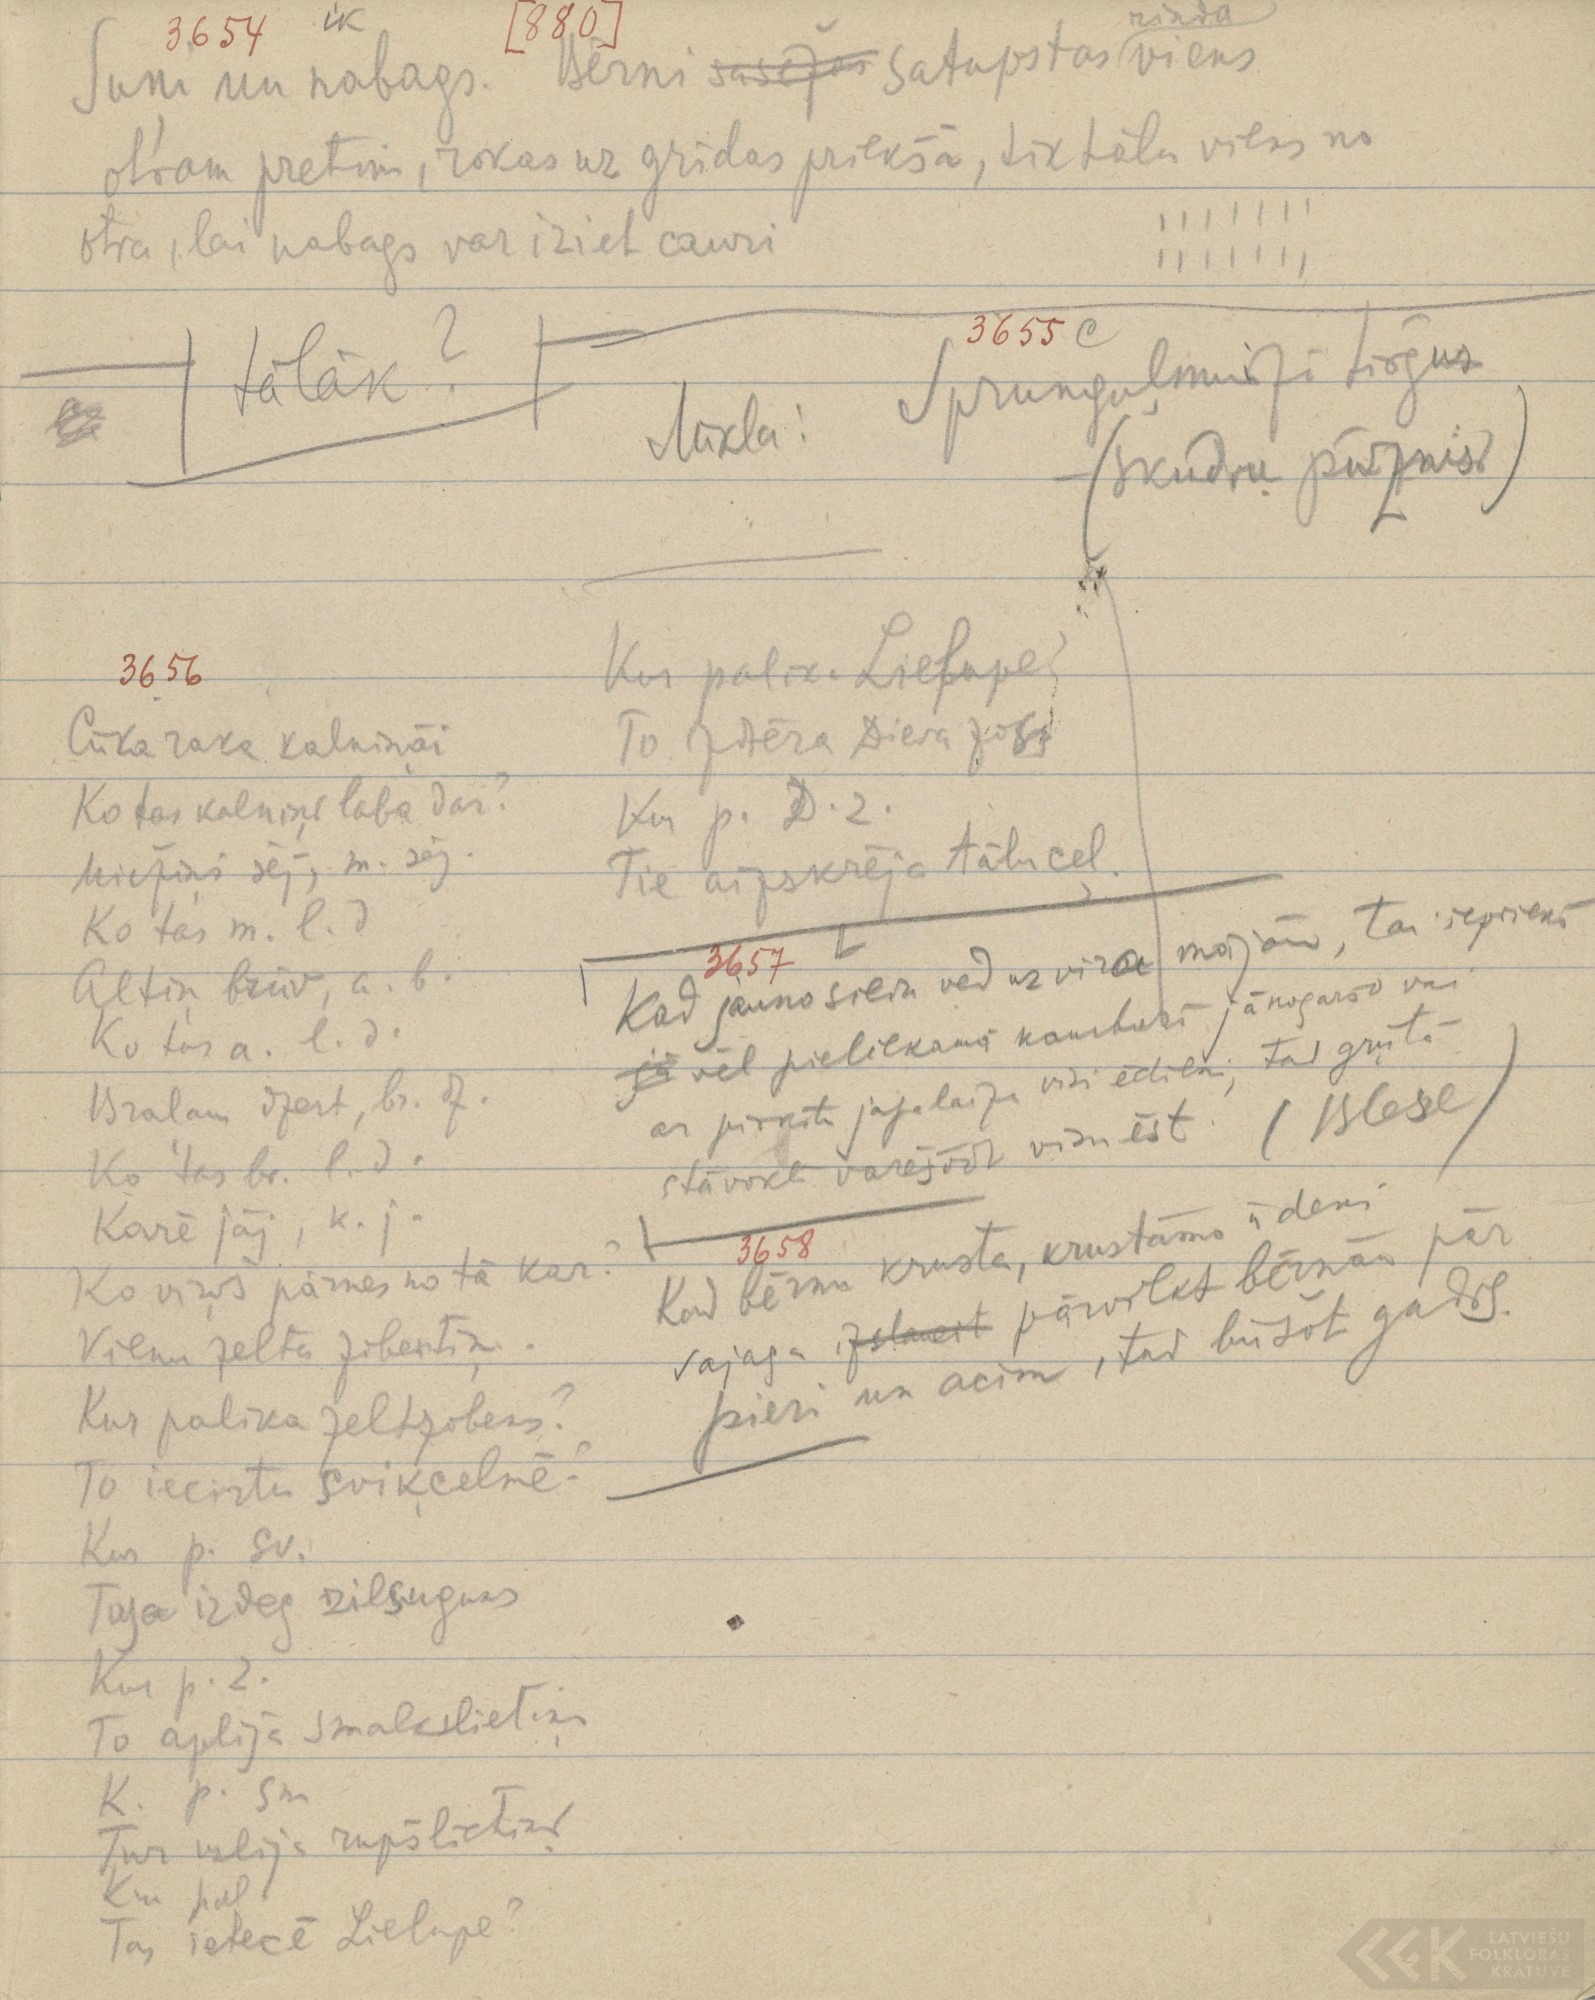 3654 ik [880]
Suņi un nabags. Bērni sasēžas satupstas rinda viens
otram pretim, rokas uz grīdas priekšā, tik tālu viens no
otra, lai nabags var iziet cauri
tālāk?
3655 c
Mīkla: Sprunguļmuižā tirgus
(skudru pūznis)
3656
Cūka raka kalniņāi
Ko tas kalniņš laba dar?
Miežiņš sēj, m. sēj.
Ko tas m. l. d
Altiņ brūv, a. b.
Ko tas a. l. d.
Bralam dzert, br. dz.
Ko tas br. l. d.
Karē jāj, k. j.
Ko viņš pārnes no tā kar?
Vienu zelta zobentiņ.
Kur palika zeltzobens?
To iecirtu sviķcelmē?
Kur p. sv.
Taja izdeg zilsuguns
Kur p. z.
To aplija smalkslietiņ
K. p. sm
Tur uzlija rupšlietiņš
Kur pal
Tas ietecē Lielupe?
Kur palik. Lielupe?
To izdzēra Dieva zoss
Kur p. D. z.
Tie aizskrēja tālu ceļ.
3657
Kad jauno sievu ved uz vīra mājām, tai iepriekš
jā vēl pieliekamā kambarī jānogaršo vai
ar pirkstu jāpalaiza visi ēdieni, tad grūtā
stāvoklī varēšot visu ēst. (Blese)
3658
Kad bērnu krusta, krustāmo ūdeni
vajaga izslaucīt pārvilkt bērnam pār
pieri un acīm, tad būšot gadīg.
LATVIEŠU
FOLKLORAS
KRĀTUVE